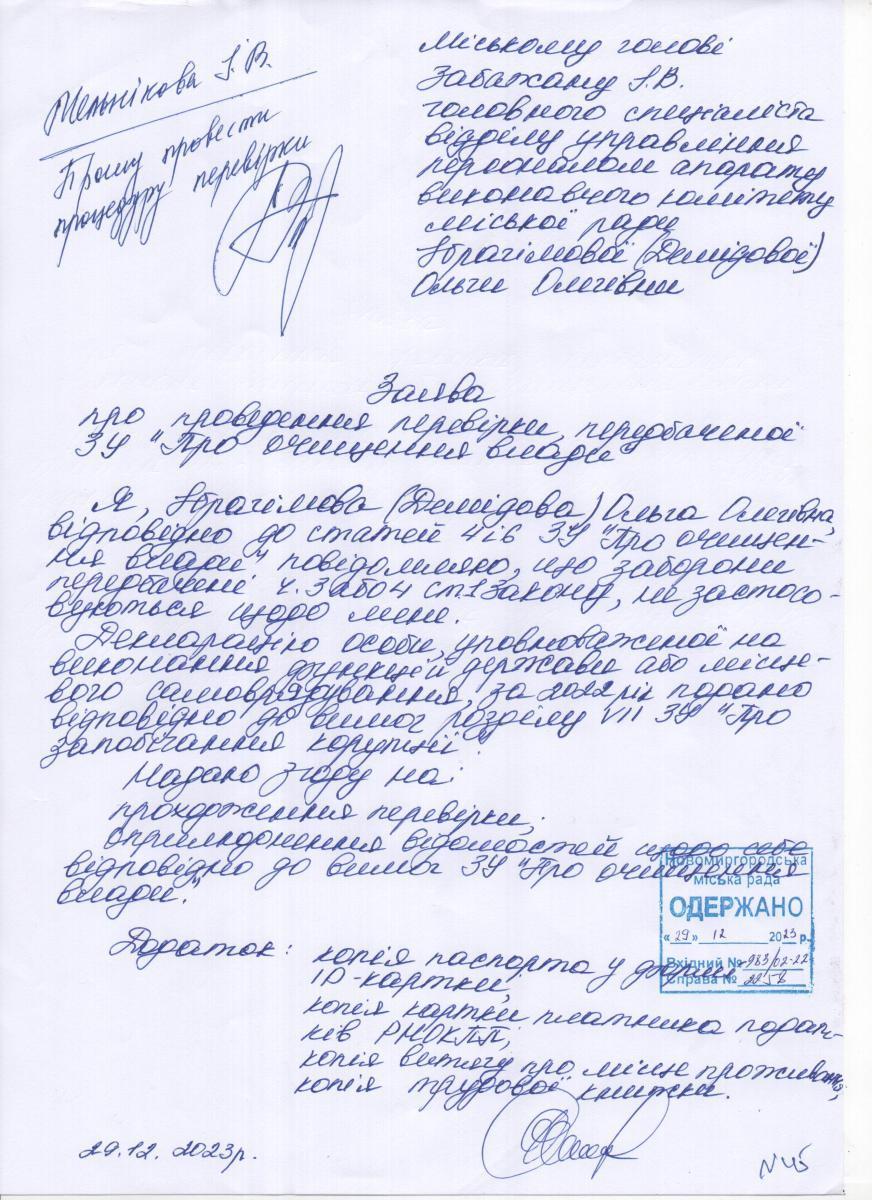 Мельнікова І.В.
Прошу провести
процедуру перевірки
Міському голові
Забажану І.В.
головного спеціаліста
відділу управління
персоналом апарату
виконавчого комітету
міської ради
Ібрагімової (Демідової)
Ольги Олегівни
Заява
про проведення перевірки, передбаченої
ЗУ "Про очищення влади"
Я, Ібрагімова (Демідова) Ольга Олегівна,
відповідно до статей 4 і 6 ЗУ "Про очищен-
ня влади" повідомляю, що заборони
передбачені ч. 3 або 4 ст. 1 Закону, не застосо-
вуються щодо мене.
Декларацію особи, уповноваженої на
виконання функцій держави або місце-
вого самоврядування, за 2022 рік подано
відповідно до вимог розділу VII ЗУ "Про
запобігання корупції".
Надаю згоду на:
проходження перевірки;
оприлюднення відомостей щодо себе
відповідно до вимог ЗУ "Про очищення
влади."
Новомиргородська
міська рада
ОДЕРЖАНО
«29» 12 2023 р.
Вхідний № 983/02-22
Справа №
Додаток: копія паспорта у формі
ID-картки;
копія картки платника податків
ків РНОКПП;
копія витягу про місце проживання;
копія трудової книжки.
29.12.2023р.
N45